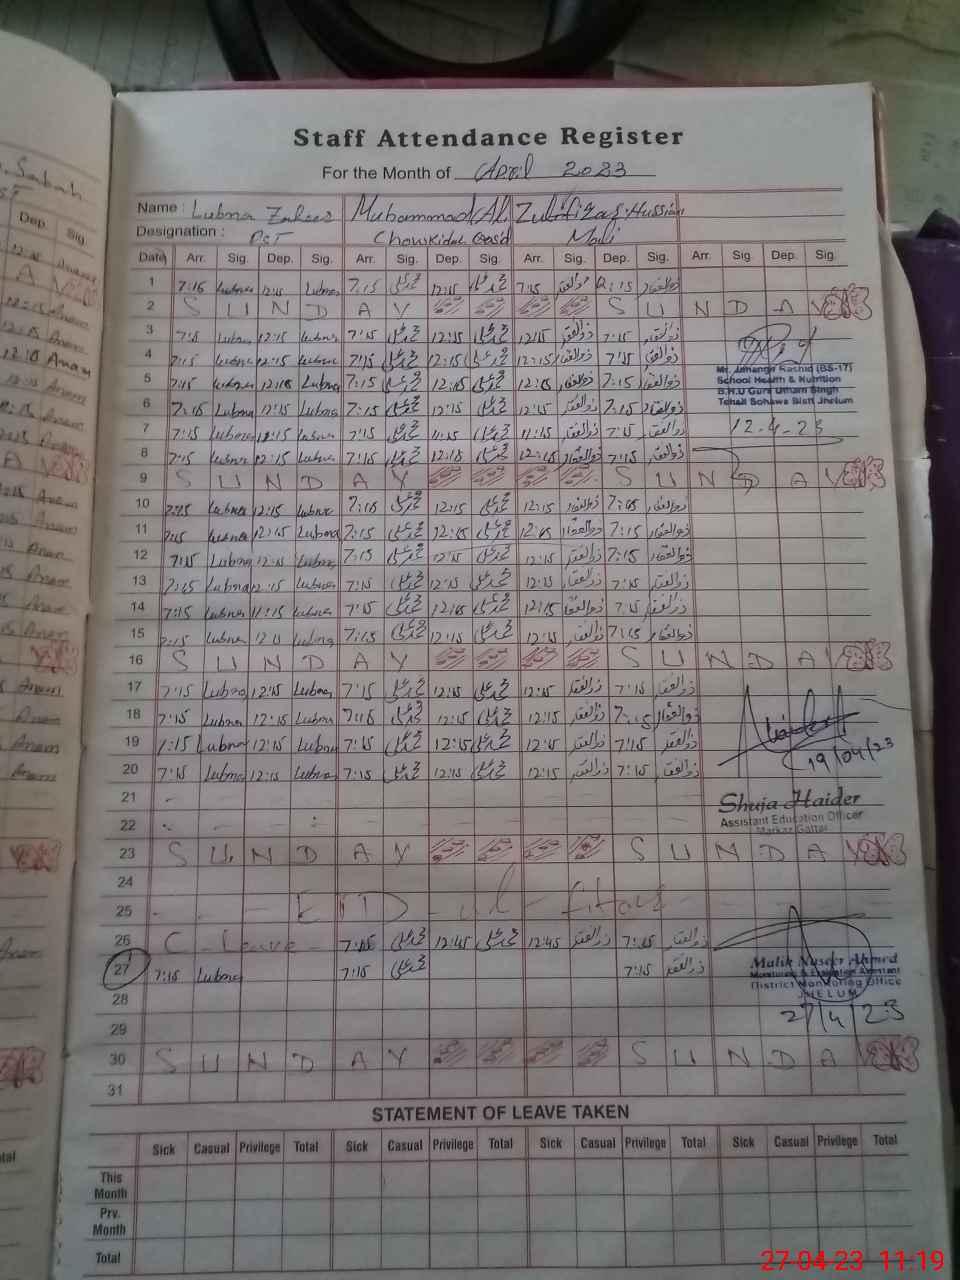 Staff Attendance Register
For the Month of April 2023
Name : Lubna Muhammad Ali Zulfiqar Hussian
Designation : PST Chowkidar Mali
Date Arr. Sig. Dep. Sig. Arr. Sig. Dep. Sig. Arr. Sig. Dep. Sig. Arr. Sig. Dep. Sig.
1 7:15 Lubna 12:15 Lubna 7:15 محمد علی 12:15 محمد علی 7:15 ذوالفقار 12:15 ذوالفقار
2 S U N D A Y S U N D A Y
3 7:15 Lubna 12:15 Lubna 7:15 محمد علی 12:15 محمد علی 12:15 ذوالفقار 7:15 ذوالفقار
4 7:15 Lubna 12:15 Lubna 7:15 محمد علی 12:15 محمد علی 12:15 ذوالفقار 7:15 ذوالفقار
Mr. Jahangir Rashid (BS-17)
5 7:15 Lubna 12:15 Lubna 7:15 محمد علی 12:15 محمد علی 12:15 ذوالفقار 7:15 ذوالفقار
School Health & Nutrition
B.H.U Gura Uttam Singh
Tehsil Sohawa Distt Jhelum
6 7:15 Lubna 12:15 Lubna 7:15 محمد علی 12:15 محمد علی 12:15 ذوالفقار 7:15 ذوالفقار
7 7:15 Lubna 11:15 Lubna 7:15 محمد علی 11:15 محمد علی 11:15 ذوالفقار 7:15 ذوالفقار 12-4-23
8 7:15 Lubna 12:15 Lubna 7:15 محمد علی 12:15 محمد علی 12:15 ذوالفقار 7:15 ذوالفقار
9 S U N D A Y S U N D A Y
10 7:15 Lubna 12:15 Lubna 7:15 محمد علی 12:15 محمد علی 12:15 ذوالفقار 7:15 ذوالفقار
11 7:15 Lubna 12:15 Lubna 7:15 محمد علی 12:15 محمد علی 12:15 ذوالفقار 7:15 ذوالفقار
12 7:15 Lubna 12:15 Lubna 7:15 محمد علی 12:15 محمد علی 12:15 ذوالفقار 7:15 ذوالفقار
13 7:15 Lubna 12:15 Lubna 7:15 محمد علی 12:15 محمد علی 12:15 ذوالفقار 7:15 ذوالفقار
14 7:15 Lubna 11:15 Lubna 7:15 محمد علی 12:15 محمد علی 12:15 ذوالفقار 7:15 ذوالفقار
15 7:15 Lubna Lubna 7:15 محمد علی 12:15 محمد علی 12:15 ذوالفقار 7:15 ذوالفقار
16 S U N D A Y S U N D A Y
17 7:15 Lubna 12:15 Lubna 7:15 محمد علی 12:15 محمد علی 12:15 ذوالفقار 7:15 ذوالفقار
18 7:15 Lubna 12:15 Lubna 7:15 محمد علی 12:15 محمد علی 12:15 ذوالفقار 7:15 ذوالفقار
19 7:15 Lubna 12:15 Lubna 7:15 محمد علی 12:15 محمد علی 12:15 ذوالفقار 7:15 ذوالفقار
20 7:15 Lubna 12:15 Lubna 7:15 محمد علی 12:15 محمد علی 12:15 ذوالفقار 7:15 ذوالفقار 19/04/23
21
Shuja Haider
Assistant Education Officer
22
Markaz Gattar
23 S U N D A Y S U N D A Y
24
25 EID-ul-fitar
26 C-Leave 7:15 محمد علی 12:45 محمد علی 12:45 ذوالفقار 7:15 ذوالفقار
27 7:15 Lubna 7:15 محمد علی 7:15 ذوالفقار
Malik Naseer Ahmed
Monitoring & Evaluation Assistant
District Monitoring Office
JHELUM
28
27/4/23
29
30 S U N D A Y S U N D A Y
31
STATEMENT OF LEAVE TAKEN
Sick Casual Privilege Total Sick Casual Privilege Total Sick Casual Privilege Total Sick Casual Privilege Total
This Month
Prv. Month
Total
27-04-23 11:19